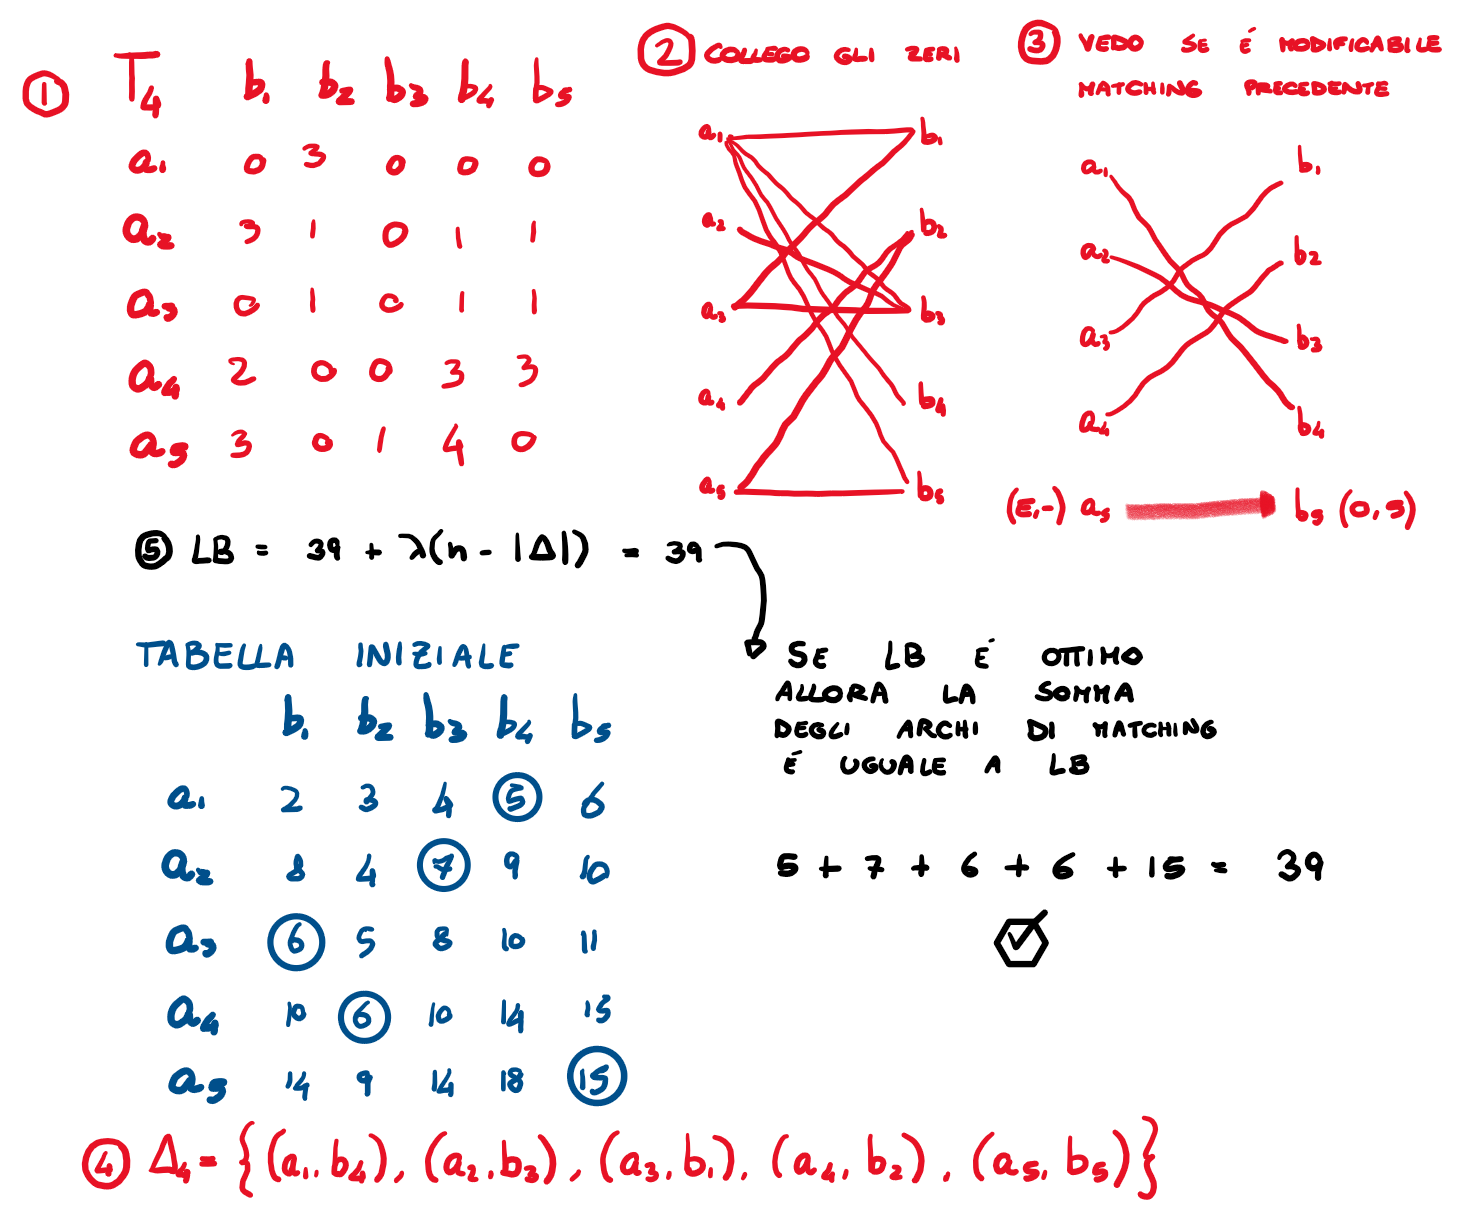 ① T4 b1 b2 b3 b4 b5
a1 0 3 0 0 0
a2 3 1 0 1 1
a3 0 1 0 1 1
a4 2 0 0 3 3
a5 3 0 1 4 0
② COLLEGO GLI ZERI
a1 b1
a2 b2
a3 b3
a4 b4
a5 b5
③ VEDO SE É MODIFICABILE
MATCHING PRECEDENTE
a1 b1
a2 b2
a3 b3
a4 b4
(E,-) a5 b5 (0,5)
⑤ LB = 39 + λ(n - |Δ|) = 39
SE LB É OTTIMO
ALLORA LA SOMMA
DEGLI ARCHI DI MATCHING
É UGUALE A LB
5 + 7 + 6 + 6 + 15 = 39
TABELLA INIZIALE
b1 b2 b3 b4 b5
a1 2 3 4 5 6
a2 8 4 7 9 10
a3 6 5 8 10 11
a4 10 6 10 14 15
a5 14 9 14 18 15
④ Δ4 = {(a1, b4), (a2, b3), (a3, b1), (a4, b2), (a5, b5)}